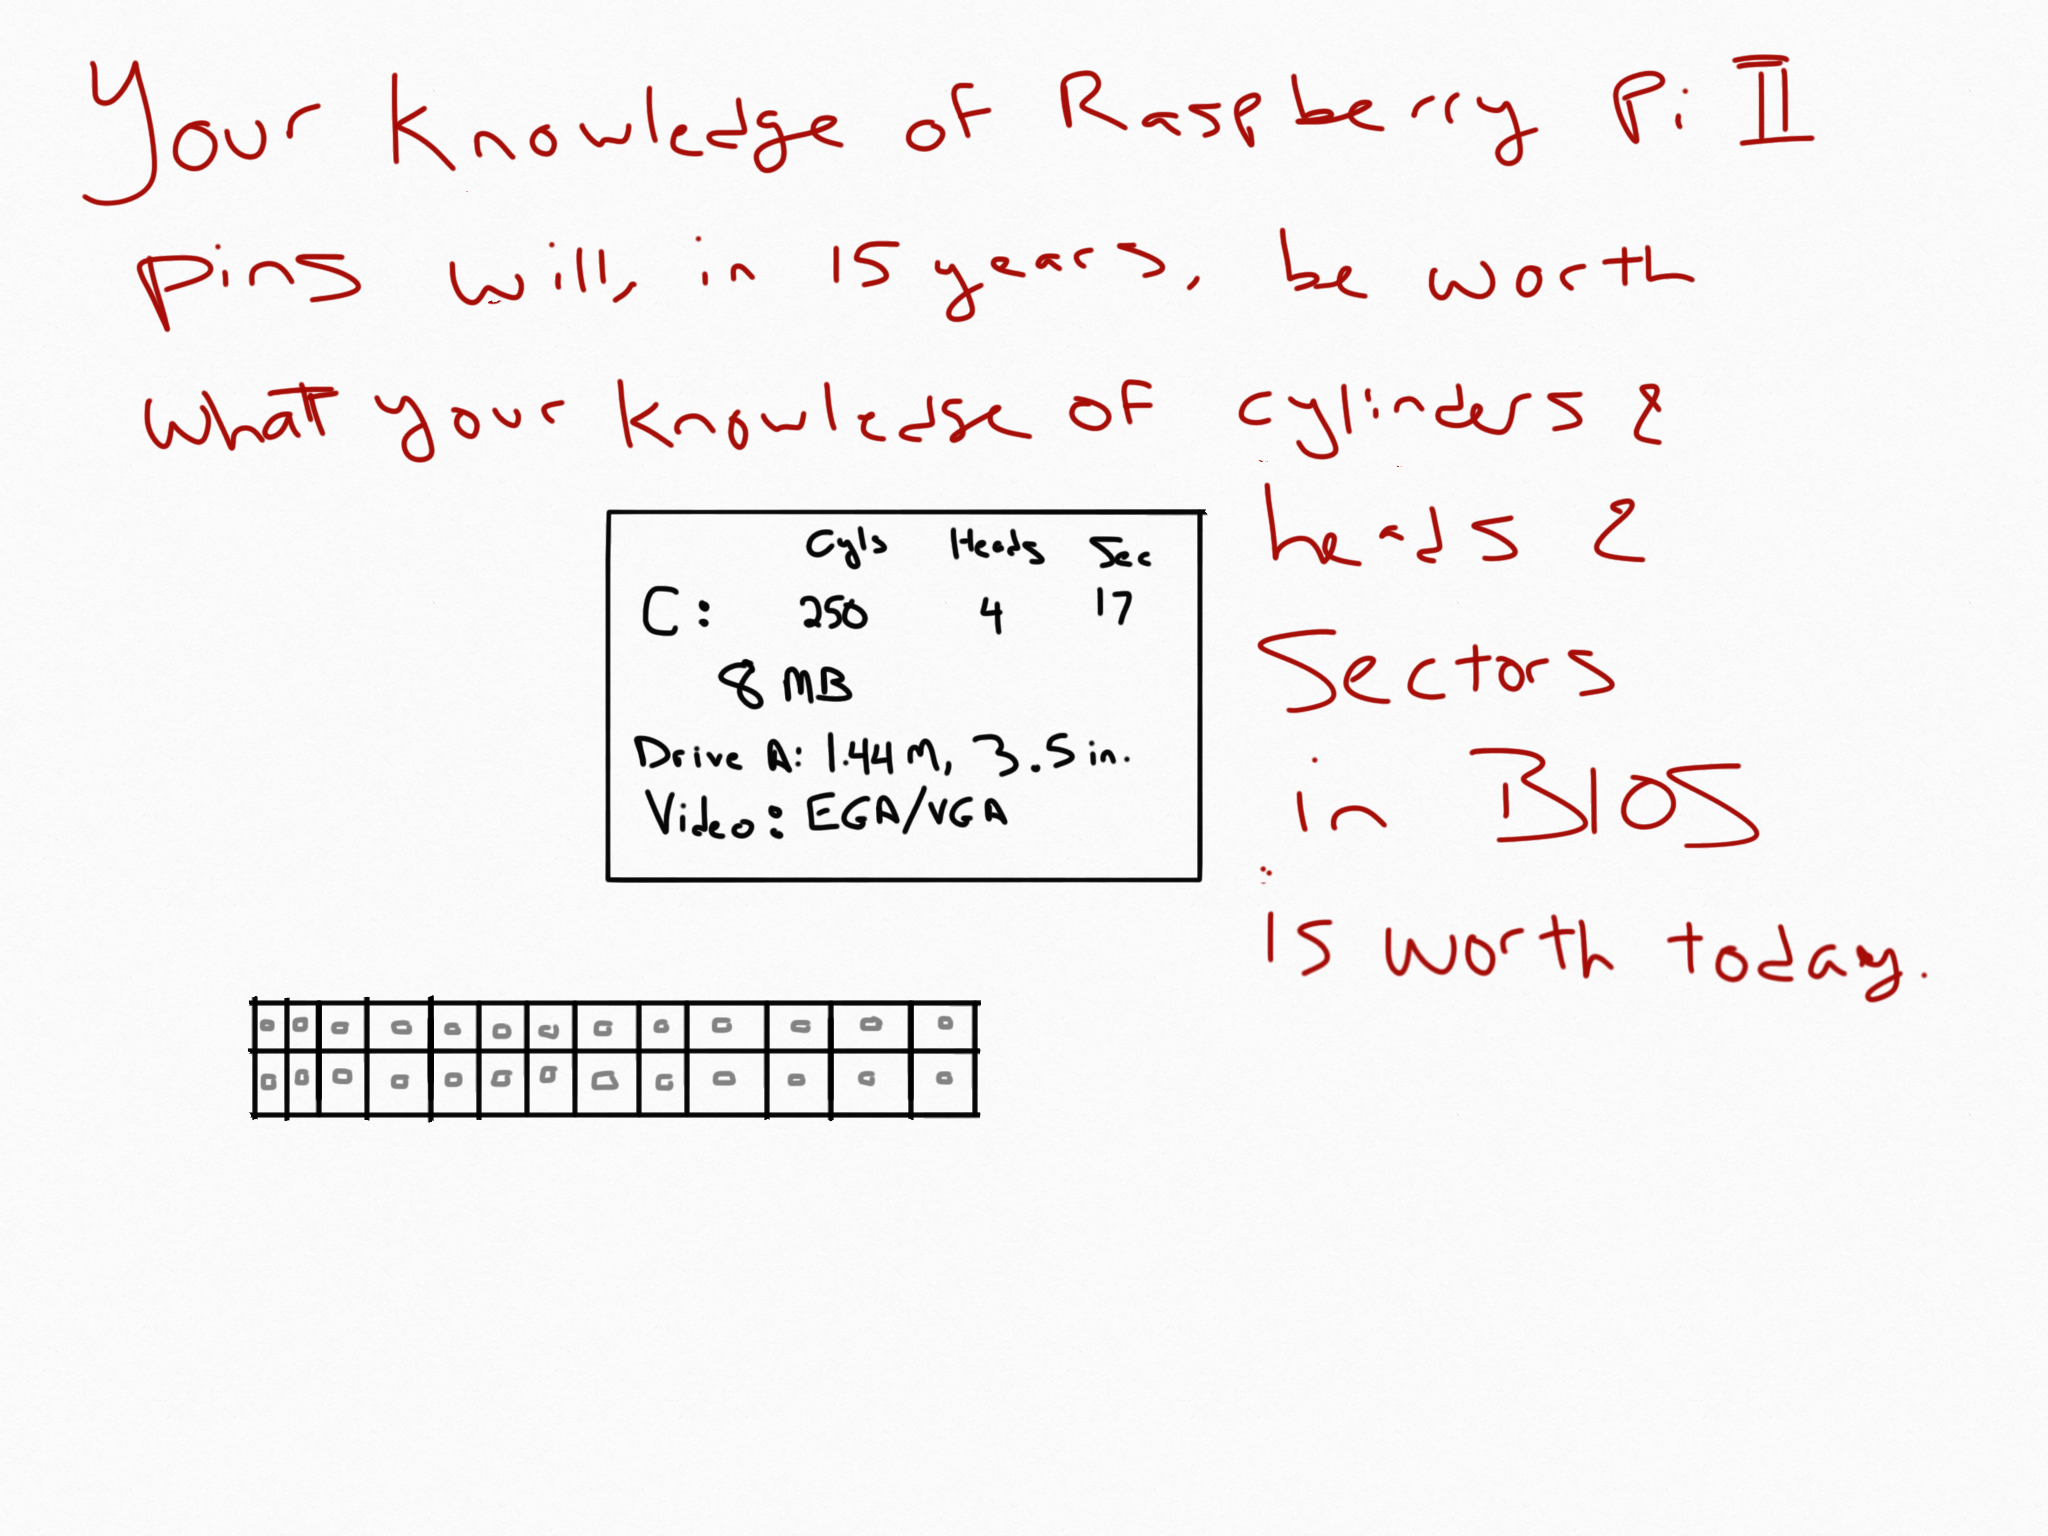 Your knowledge of Raspberry Pi II
pins will, in 15 years, be worth
what your knowledge of cylinders &
heads &
Sectors
in BIOS
is worth today.
Cyls Heads Sec
C: 250 4 17
8 MB
Drive A: 1.44 M, 3.5 in.
Video: EGA/VGA